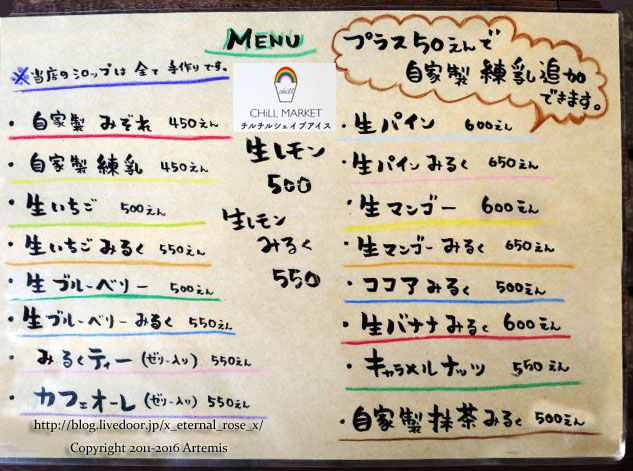 MENU
※当店のシロップは全て手作りです。
プラス50えんで
自家製練乳追加
できます。
chill
CHiLL MARKET
チルチルシェイブアイス
・自家製みぞれ 450えん
・自家製練乳 450えん
・生いちご 500えん
・生いちごみるく 550えん
・生ブルーベリー 500えん
・生ブルーベリーみるく 550えん
・みるくティー(ゼリー入り) 550えん
・カフェオーレ(ゼリー入り) 550えん
生レモン
500
生レモン
みるく
550
・生パイン 600えん
・生パインみるく 650えん
・生マンゴー 600えん
・生マンゴーみるく 650えん
・ココアみるく 500えん
・生バナナみるく 600えん
・キャラメルナッツ 550えん
・自家製抹茶みるく 500えん
http://blog.livedoor.jp/x_eternal_rose_x/
Copyright 2011-2016 Artemis